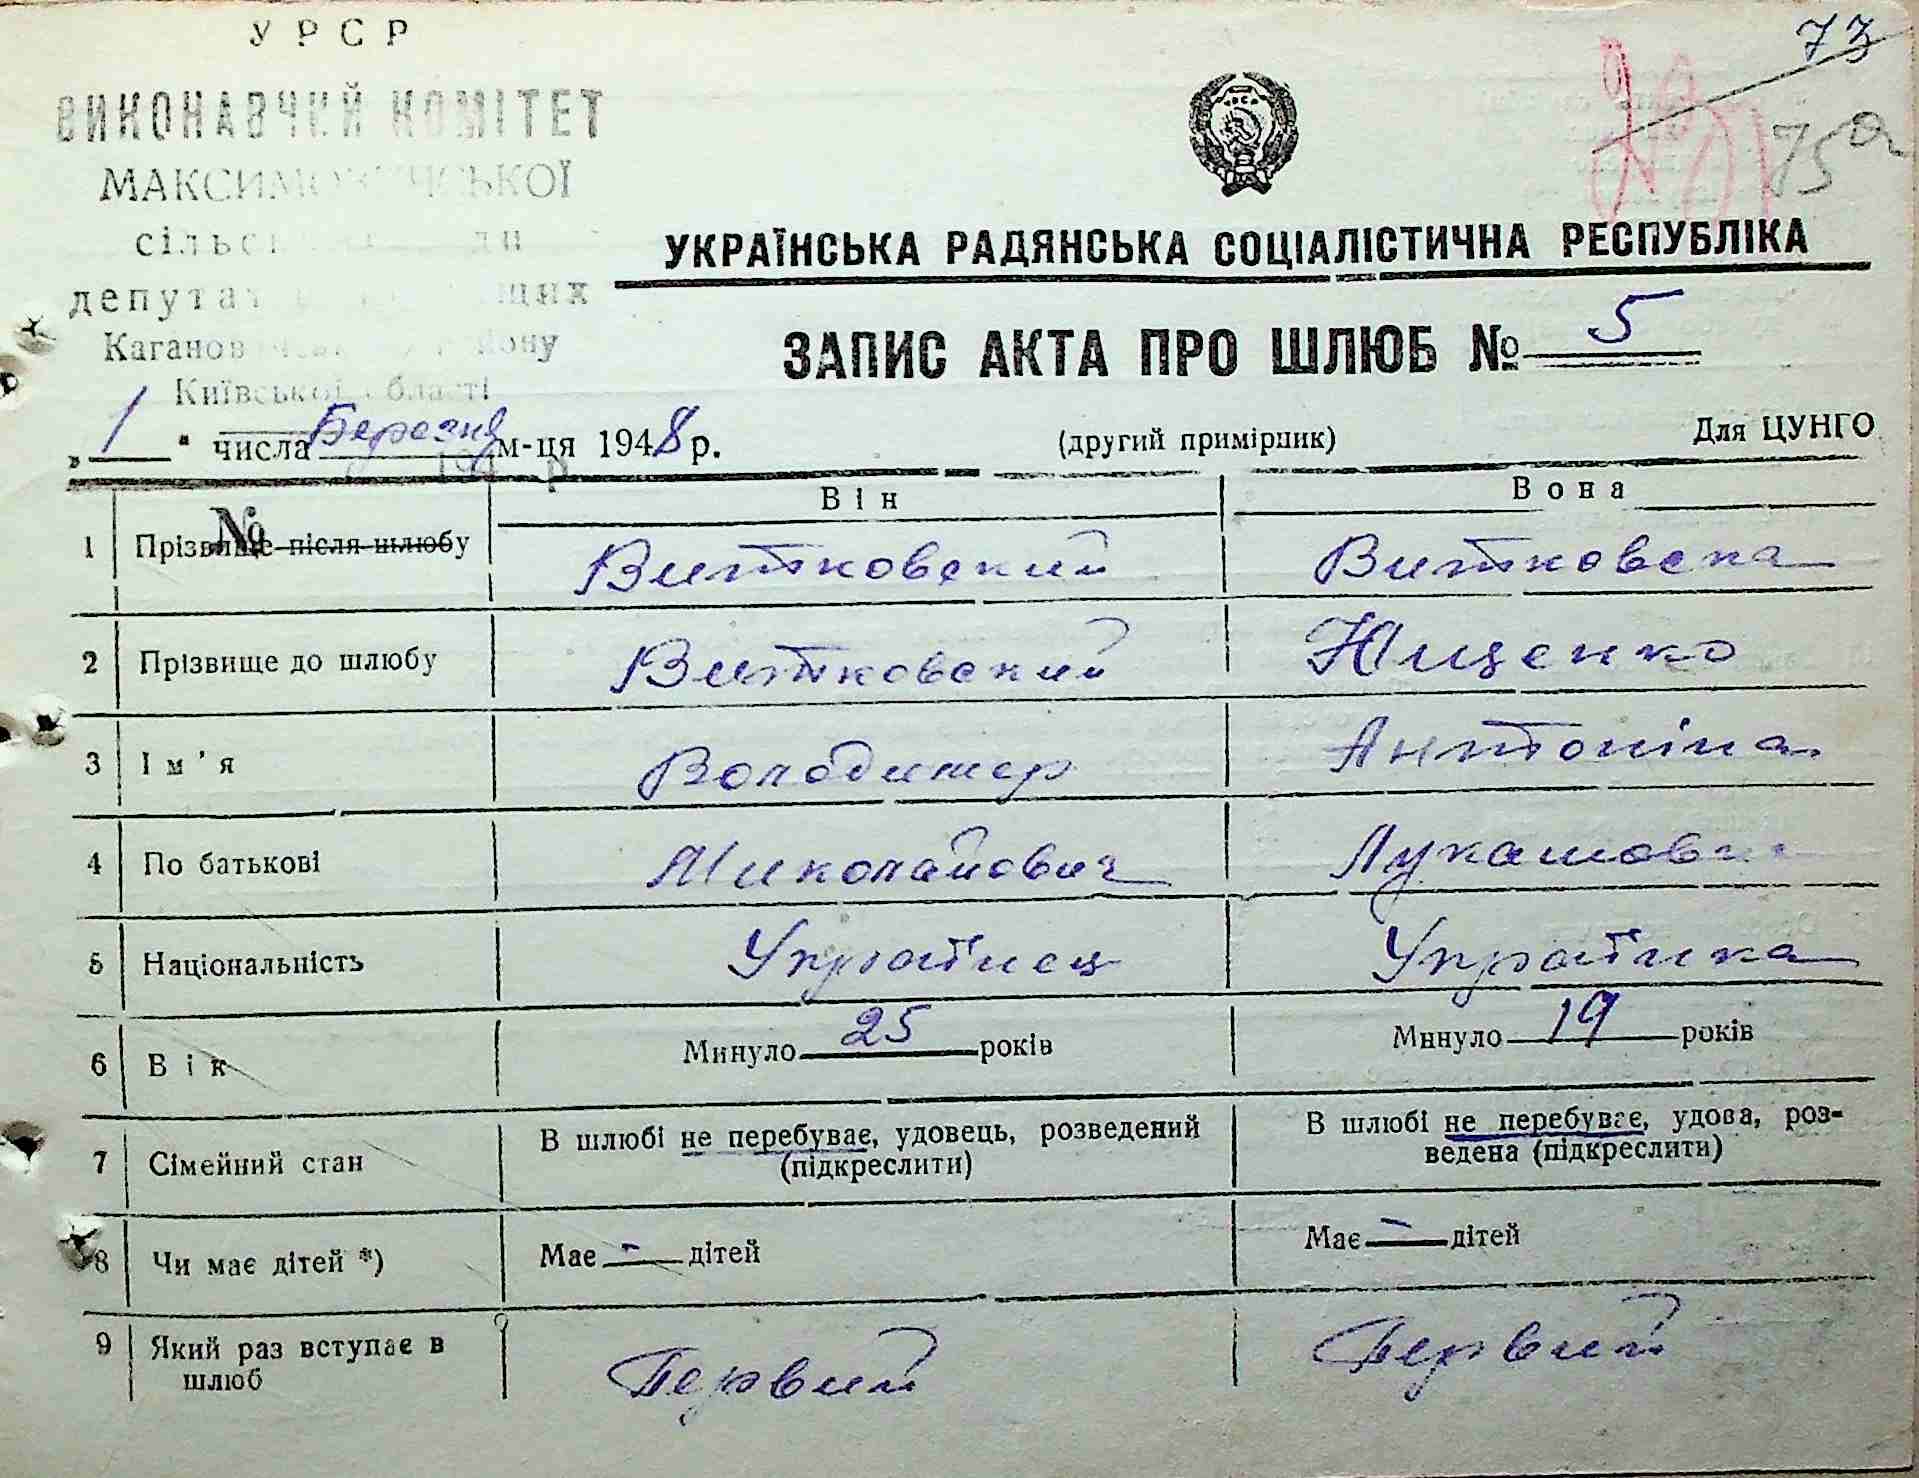 УРСР
ВИКОНАВЧИЙ КОМІТЕТ
МАКСИМОВИЧСЬКОЇ
Київської області
73
75а
УКРАЇНСЬКА РАДЯНСЬКА СОЦІАЛІСТИЧНА РЕСПУБЛІКА
ЗАПИС АКТА ПРО ШЛЮБ № 5
„ 1 " числа Березня м-ця 1948 р. (другий примірник) Для ЦУНГО
№
Він Вона
1 Прізвище після шлюбу Витковский Витковска
2 Прізвище до шлюбу Витковский Нищенко
3 Ім'я Володимер Антоніна
4 По батькові Миколайович Лукашовна
5 Національність Українец Українка
6 Вік Минуло 25 років Минуло 19 років
7 Сімейний стан В шлюбі не перебуває, удовець, розведений (підкреслити) В шлюбі не перебуває, удова, розведена (підкреслити)
8 Чи має дітей *) Має - дітей Має - дітей
9 Який раз вступає в шлюб Первий Первий